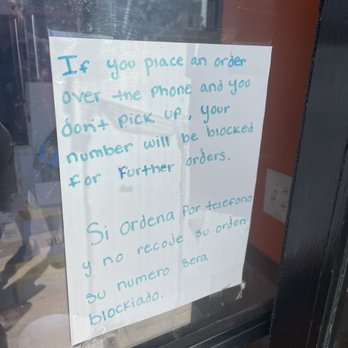 If you place an order
over the phone and you
don't pick up, your
number will be blocked
for further orders.
Si ordena por telefono
y no recoje su orden
su numero sera
blockiado.